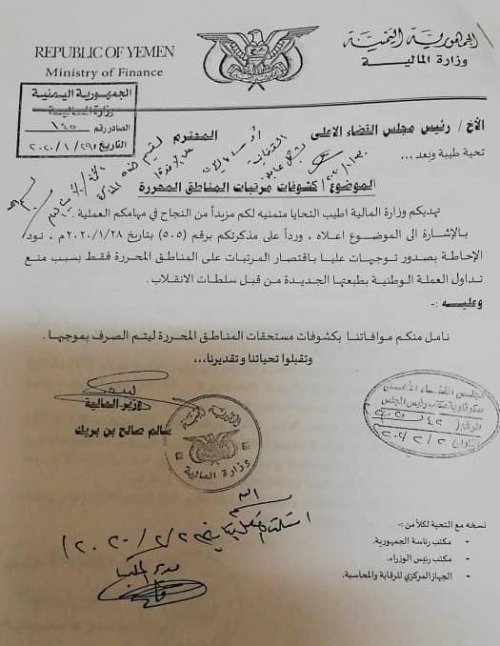 الجمهورية اليمنية
وزارة المالية
REPUBLIC OF YEMEN
Ministry of Finance
الجمهورية اليمنية
وزارة المالية
الصادر رقم ١٤٥
التاريخ ٢٠٢٠/١/٢٩
الأخ / رئيس مجلس القضاء الاعلى المحترم
تحية طيبة وبعد ...
الموضوع / كشوفات مرتبات المناطق المحررة
تهديكم وزارة المالية اطيب التحايا متمنيه لكم مزيداً من النجاح في مهامكم العملية .
بالإشارة الى الموضوع اعلاه ، ورداً على مذكرتكم برقم (٥٠٥) بتاريخ ٢٠٢٠/١/٢٨م ، نود
الإحاطة بصدور توجيهات عليا باقتصار المرتبات على المناطق المحررة فقط بسبب منع
تداول العملة الوطنية بطبعتها الجديدة من قبل سلطات الانقلاب .
وعليه :-
نامل منكم موافاتنا بكشوفات مستحقات المناطق المحررة ليتم الصرف بموجبها .
وتقبلوا تحياتنا وتقديرنا ،،،
وزير المالية
سالم صالح بن بريك
الجمهورية اليمنية
وزارة المالية
مجلس القضاء الأعلى
سكرتارية مكتب رئيس المجلس
الرقم
استلمت الأصل بتاريخ ٢٠٢٠/٢/٢
مدير المكتب
نسخه مع التحية لكلاً من :-
- مكتب رئاسة الجمهورية.
- مكتب رئيس الوزراء.
- الجهاز المركزي للرقابة والمحاسبة.